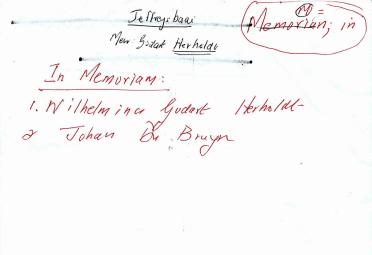 Jeffreysbaai
Mev. Godart Herholdt
(M) =
Memoriam, in
In Memoriam:
1. Wilhelmina Godart Herholdt
2 Johan Du Bruyn